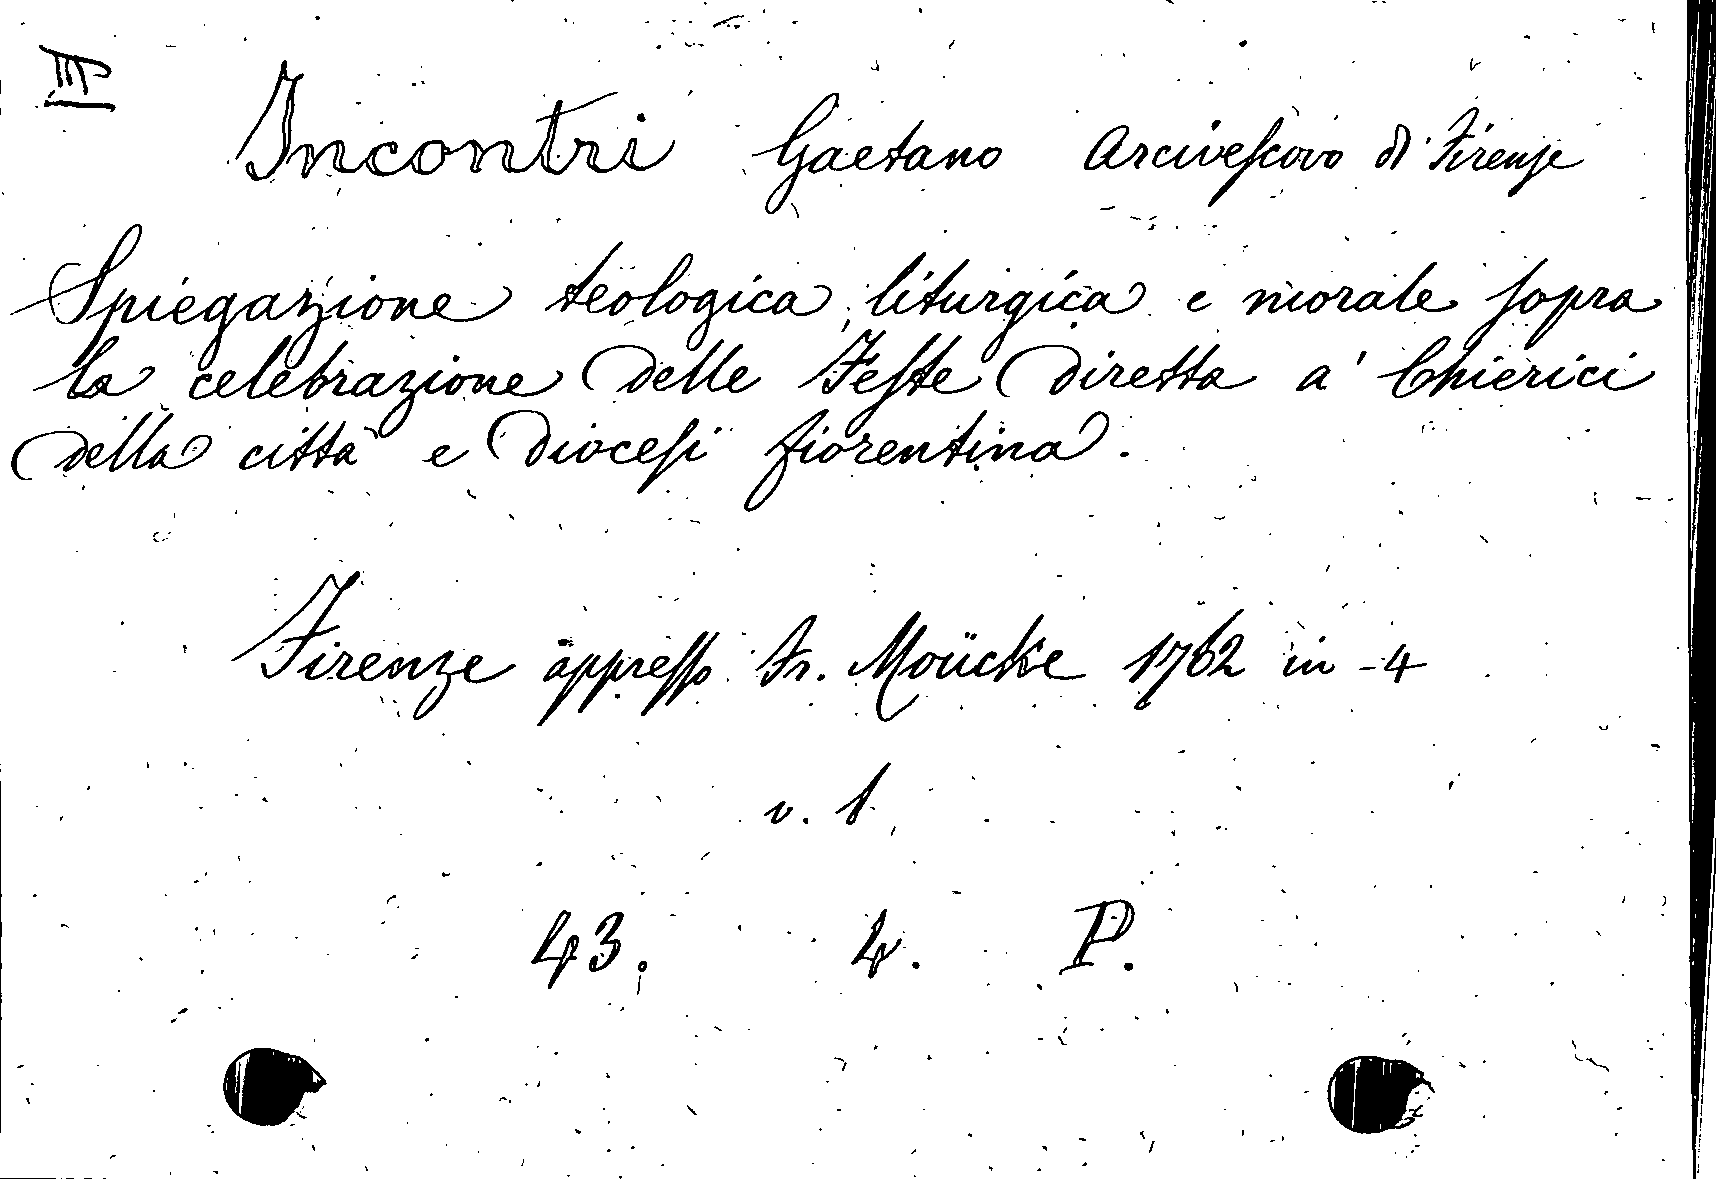 III
Incontri Gaetano Arcivescovo di Firenze
Spiegazione teologica, liturgica e morale sopra
la celebrazione delle Feste diretta a' Chierici
della città e Diocesi fiorentina.
Firenze appresso Fr. Moücke 1762 in-4
v. 1
43. 4. P.